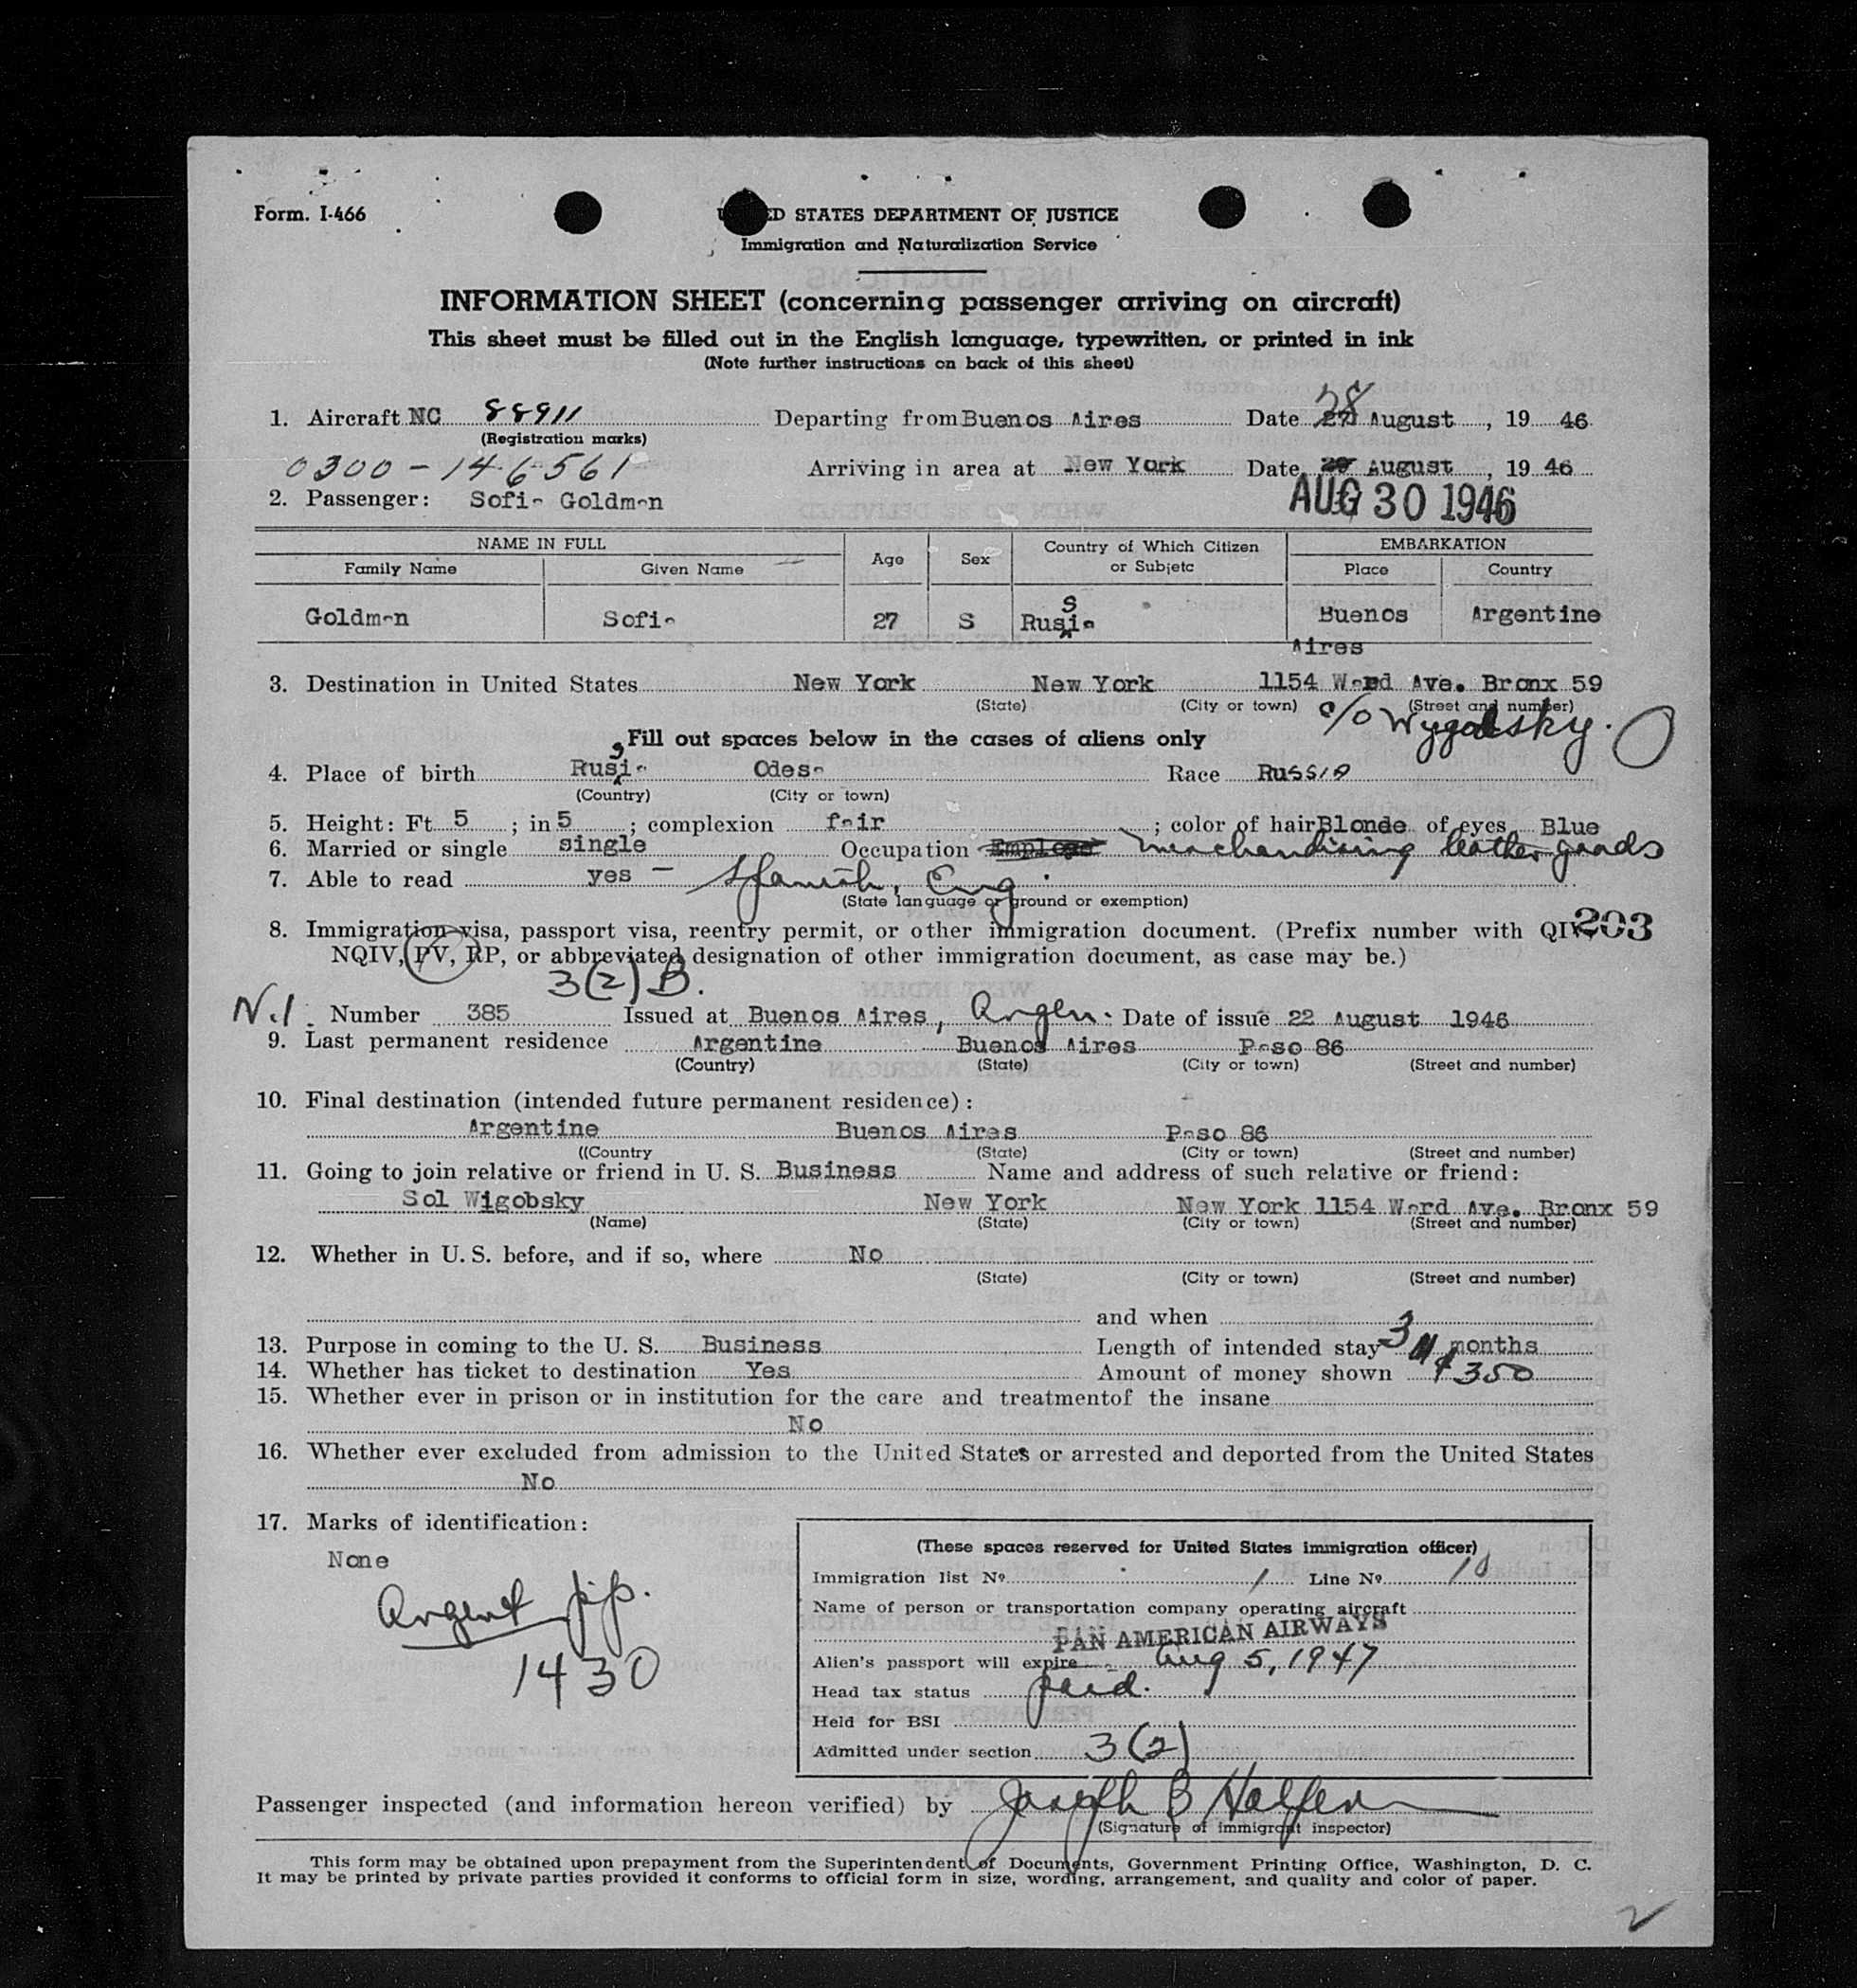 Form. I-466
UNITED STATES DEPARTMENT OF JUSTICE
Immigration and Naturalization Service
INFORMATION SHEET (concerning passenger arriving on aircraft)
This sheet must be filled out in the English language, typewritten, or printed in ink
(Note further instructions on back of this sheet)
1. Aircraft NC 88911 Departing from Buenos Aires Date 28 August, 19 46
(Registration marks)
0300-146561 Arriving in area at New York Date August, 19 46
2. Passenger: Sofia Goldman AUG 30 1946
NAME IN FULL Age Sex Country of Which Citizen or Subjetc EMBARKATION
Family Name Given Name Place Country
Goldman Sofia 27 S Russia Buenos Aires Argentine
3. Destination in United States New York New York 1154 Ward Ave. Bronx 59
(State) (City or town) (Street and number)
c/o Wygodsky.
Fill out spaces below in the cases of aliens only
4. Place of birth Russia Odesa Race Russia
(Country) (City or town)
5. Height: Ft 5 ; in 5 ; complexion fair ; color of hair Blonde of eyes Blue
6. Married or single single Occupation Employe merchandising leather goods
7. Able to read yes - Spanish, Eng.
(State language or ground or exemption)
8. Immigration visa, passport visa, reentry permit, or other immigration document. (Prefix number with QIV, 203
NQIV, PV, RP, or abbreviated designation of other immigration document, as case may be.)
3(2)B.
N.I. Number 385 Issued at Buenos Aires, Argen. Date of issue 22 August 1946
9. Last permanent residence Argentine Buenos Aires Paso 86
(Country) (State) (City or town) (Street and number)
10. Final destination (intended future permanent residence):
Argentine Buenos Aires Paso 86
((Country (State) (City or town) (Street and number)
11. Going to join relative or friend in U. S. Business Name and address of such relative or friend:
Sol Wigobsky New York New York 1154 Ward Ave. Bronx 59
(Name) (State) (City or town) (Street and number)
12. Whether in U. S. before, and if so, where No
(State) (City or town) (Street and number)
and when
13. Purpose in coming to the U. S. Business Length of intended stay 3 months
14. Whether has ticket to destination Yes Amount of money shown $350
15. Whether ever in prison or in institution for the care and treatmentof the insane
No
16. Whether ever excluded from admission to the United States or arrested and deported from the United States
No
17. Marks of identification:
None
Argent p.p.
1430
(These spaces reserved for United States immigration officer)
Immigration list Nº 1 Line Nº 10
Name of person or transportation company operating aircraft
PAN AMERICAN AIRWAYS
Alien's passport will expire Aug 5, 1947
Head tax status paid.
Held for BSI
Admitted under section 3(2)
Passenger inspected (and information hereon verified) by Joseph B Halfern
(Signature of immigrant inspector)
This form may be obtained upon prepayment from the Superintendent of Documents, Government Printing Office, Washington, D. C.
It may be printed by private parties provided it conforms to official form in size, wording, arrangement, and quality and color of paper.